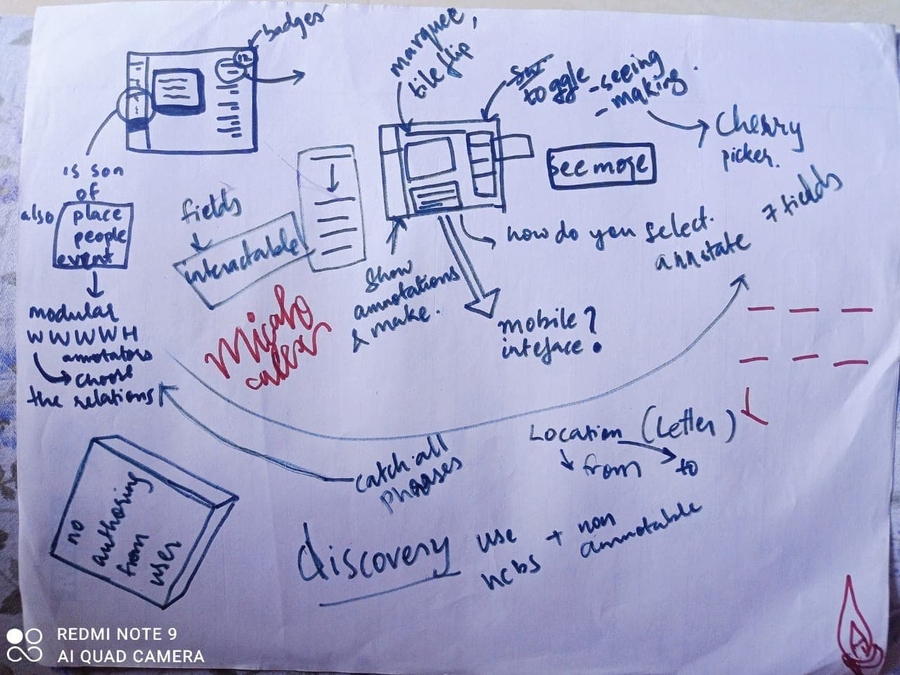 badges
marquee,
tile flip
toggle - seeing
- making
Cherry
picker.
see more
is son
of
also
place
people
event
fields
interactable
how do you select.
annotate 7 fields
Show
annotations
& make.
modular
WWWWH
annotators
choose
the relations
mobile?
inteface?
Location (Letter)
from to
catch-all
phrases
no
authoring
from
user
discovery
use
ncbs + non
annotable
REDMI NOTE 9
AI QUAD CAMERA